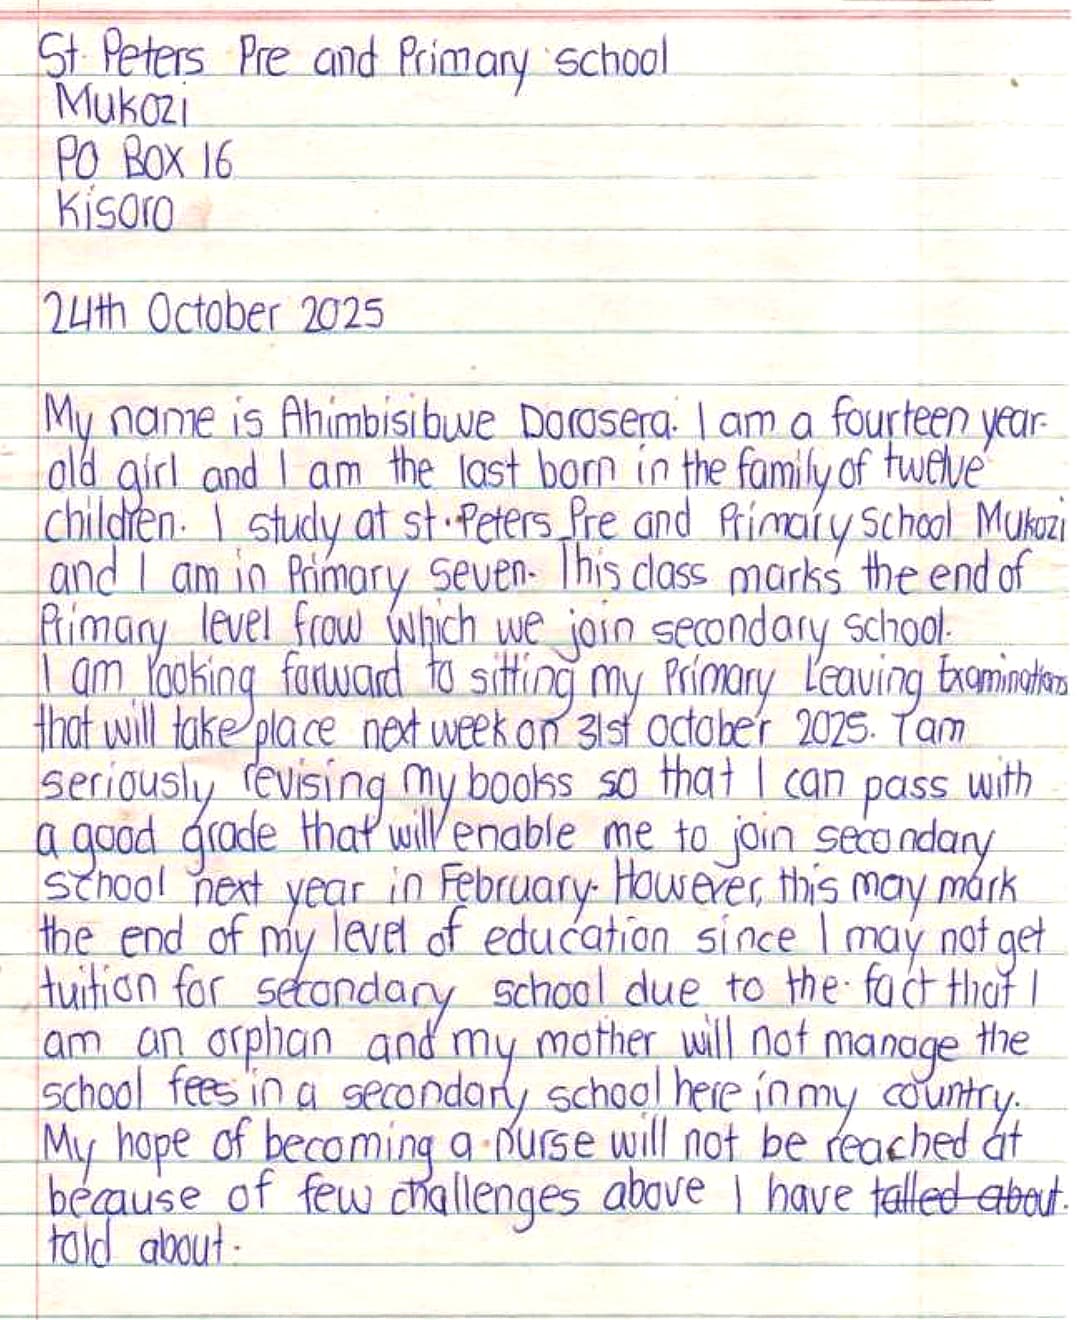 St. Peters Pre and Primary school
Mukozi
PO BOX 16
Kisoro
24th October 2025
My name is Ahimbisibwe Dorosera. I am a fourteen year-
old girl and I am the last born in the family of twelve
children. I study at st. Peters Pre and Primary School Mukozi
and I am in Primary seven. This class marks the end of
Primary level frow which we join secondary school.
I am looking forward to sitting my Primary Leaving Examinations
that will take place next week on 31st October 2025. I am
seriously revising my books so that I can pass with
a good grade that will enable me to join secondary
school next year in February. However, this may mark
the end of my level of education since I may not get
tuition for secondary school due to the fact that I
am an orphan and my mother will not manage the
school fees in a secondary school here in my country.
My hope of becoming a nurse will not be reached at
because of few challenges above I have talled about.
told about.